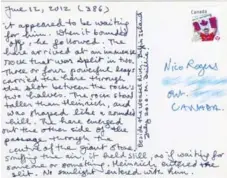 June 12, 2012 (286)
appeared to be waiting
for him. When it bounded
off, he followed. The
hare arrived at an immense
rock that was split in two.
Three or four powerful leaps
carried the hare through
the slot between the rock's
two halves. The rock stood
taller than Heinrich, and
was shaped like a rounded
The hare emerged
out the other side of the
passage through the
centre of the giant stone
sniffing the air, it held still, as if waiting for
someone or something. Heinrich entered the
slit. No sunlight entered with him.
CANADA
Nico Rogers
Ont.
CANADA